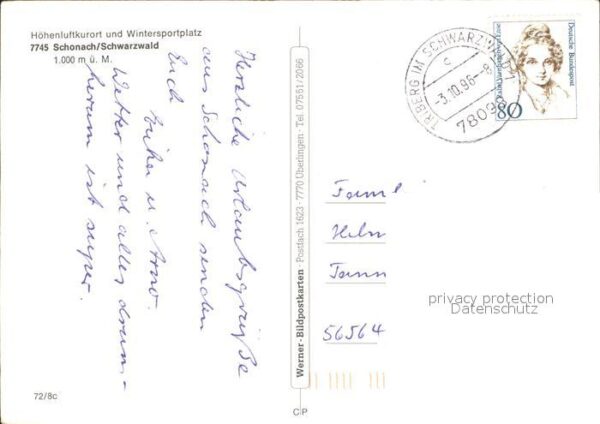 Höhenluftkurort und Wintersportplatz
7745 Schonach/Schwarzwald
1.000 m ü. M.
Herzliche Urlaubsgrüße
aus Schonach senden
Euch
Erika u. Arno.
Wetter und alles drum-
herum ist super.
72/8c
Werner-Bildpostkarten · Postfach 1623 · 7770 Überlingen · Tel. 07551/2066
CP
TRIBERG IM SCHWARZWALD 1
c
-3.10.96-8
78098
Deutsche Bundespost
80
Faml
Helm
Tann
56564
privacy protection
Datenschutz